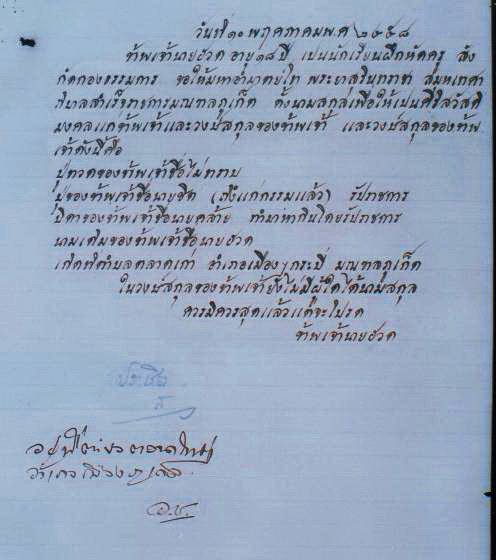 วันที่ ๑๐ พฤศภาคม พ.ศ ๒๔๕๘
ข้าพเจ้านายฮวด อายุ ๑๘ ปี เปนนักเรียนฝึกหัดครู สัง
กัดกองธรรมการ ขอให้มหาอำมาตย์โท พระยาสุรินทราชา สมุหเทศา
ภิบาลสำเร็จราชการมณฑลภูเก็ต ตั้งนามสกุลเพื่อให้เปนศิริสวัสดิ
มงคลแก่ข้าพเจ้าและวงษ์สกุลของข้าพเจ้า และวงษ์สกุลของข้าพ
เจ้าดังนี้คือ
ปู่ทวดของข้าพเจ้าชื่อไม่ทราบ
ปู่ของข้าพเจ้าชื่อนายชิต (ถึงแก่กรรมแล้ว) รับราชการ
บิดาของข้าพเจ้าชื่อนายคล้าย ทำมาหากินโดยรับราชการ
นามเดิมของข้าพเจ้าชื่อนายฮวด
เกิดที่ตำบลตลาดเก่า อำเภอเมืองฯกระบี่ มณฑลภูเก็ต
ในวงษ์สกุลของข้าพเจ้ายังไม่มีผู้ใดได้นามสกุล
ควรมิควรสุดแล้วแต่จะโปรด
ข้าพเจ้านายฮวด